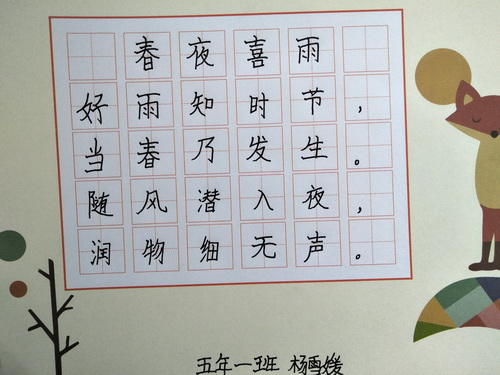 春夜喜雨
好雨知时节，
当春乃发生。
随风潜入夜，
润物细无声。
五年一班 杨雪媛